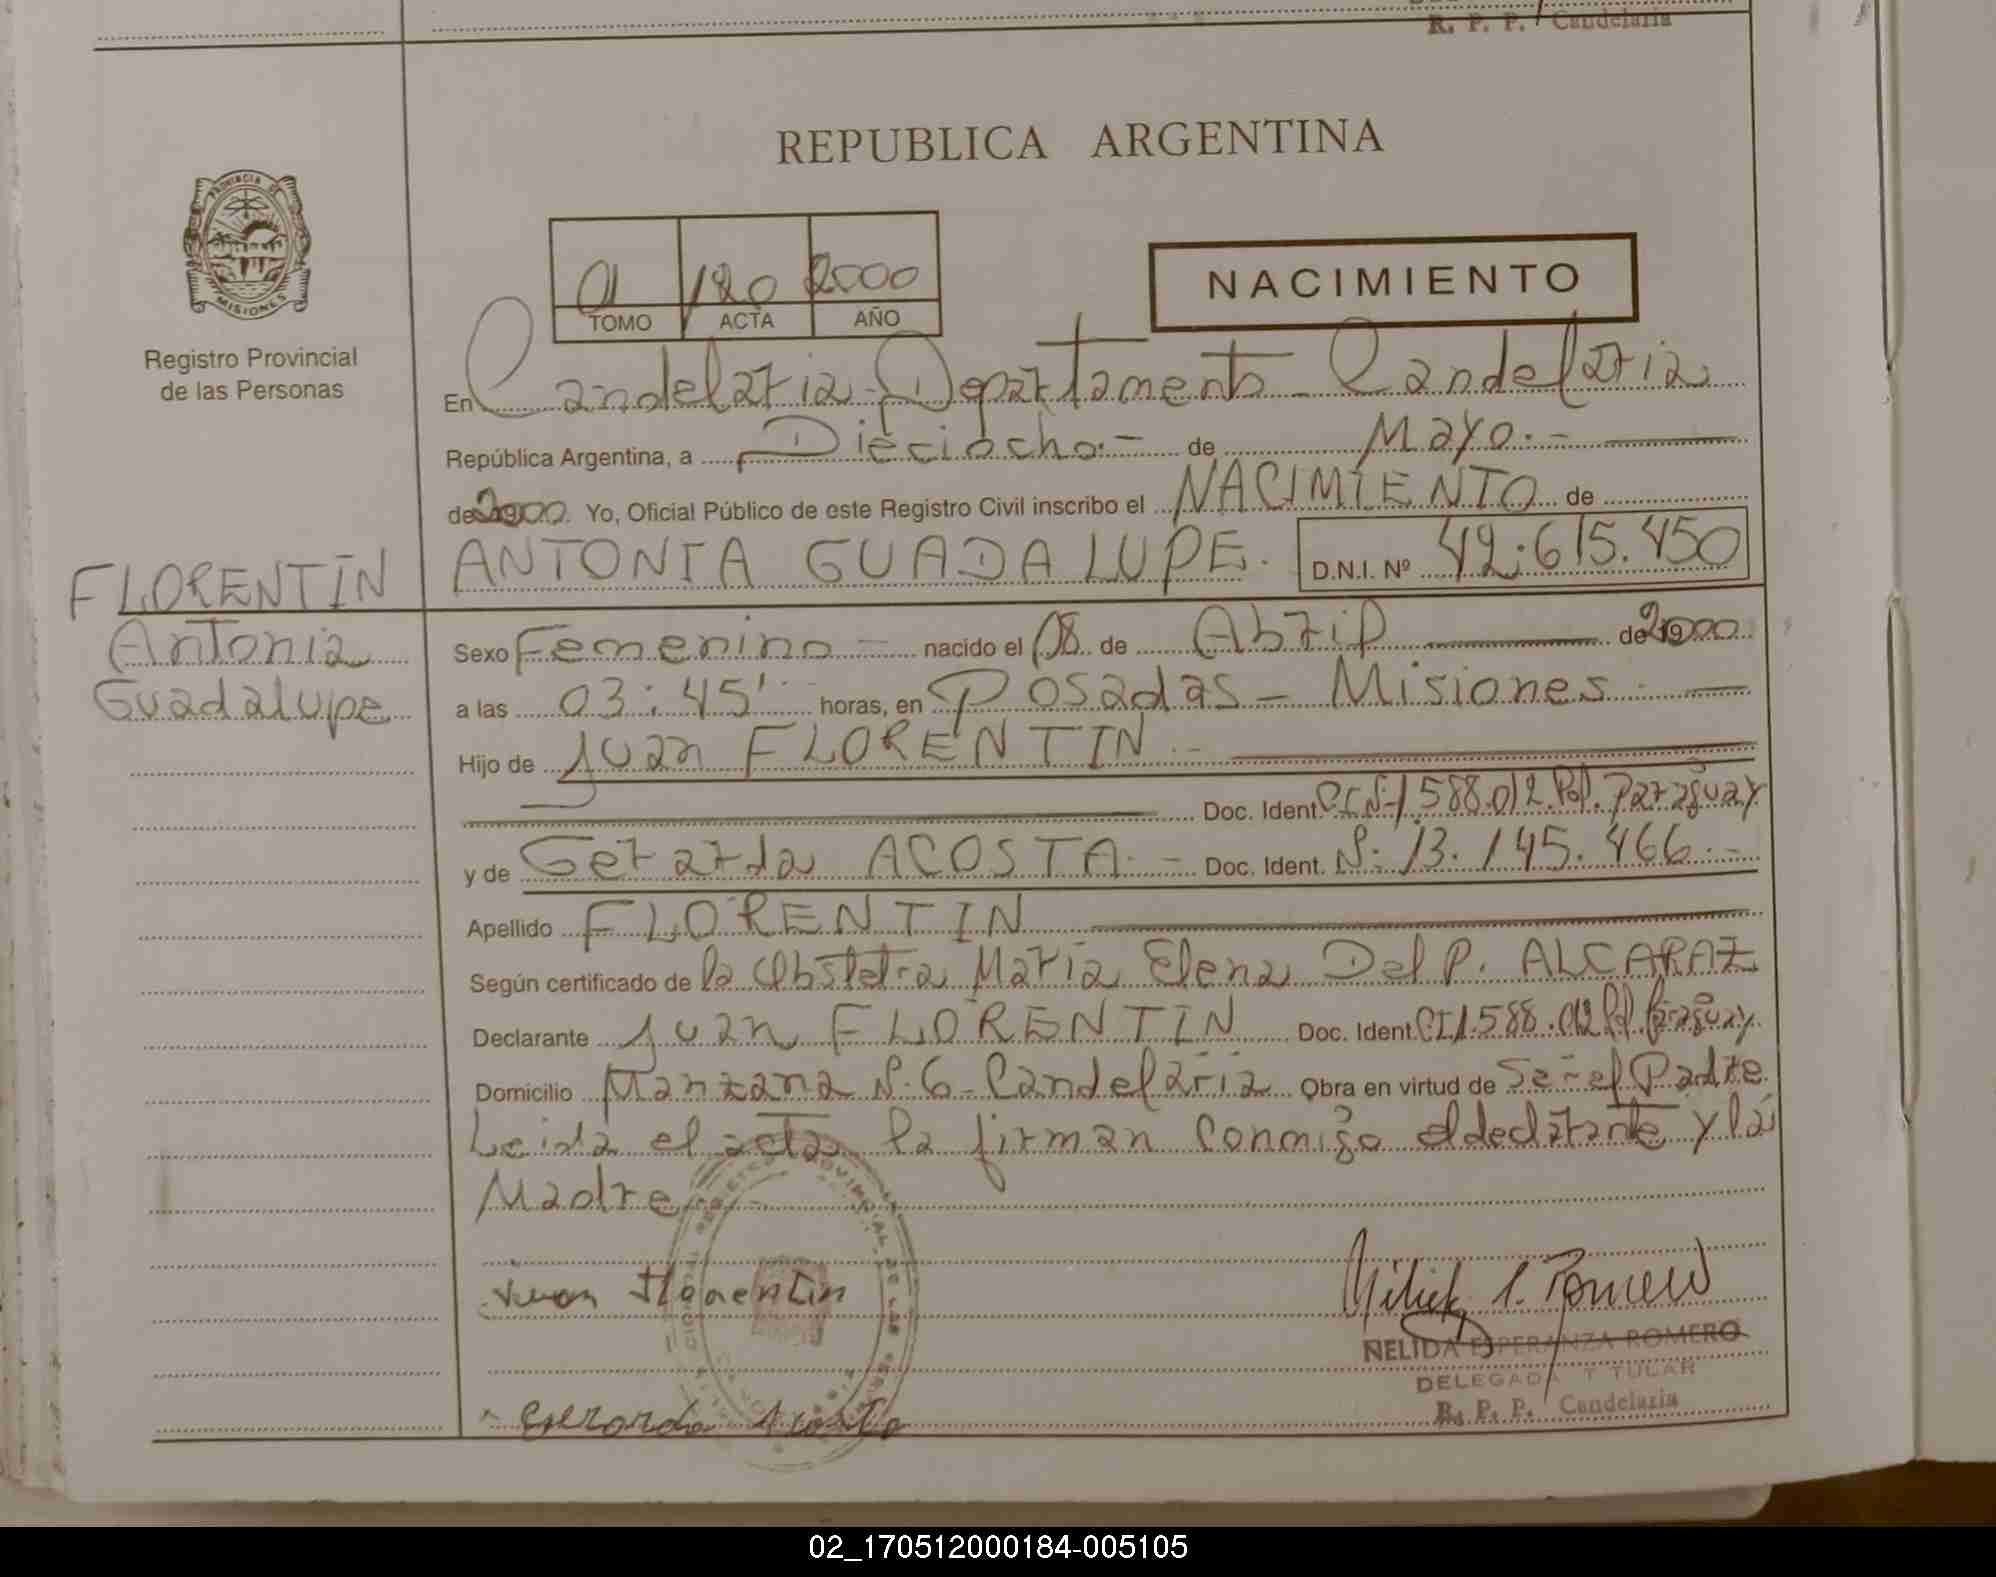 R. P. P. Candelaria
REPUBLICA ARGENTINA
PROVINCIA DE
MISIONES
Registro Provincial
de las Personas
01 120 2000
TOMO ACTA AÑO
NACIMIENTO
En Candelaria - Departamento - Candelaria
República Argentina, a Dieciocho.- de Mayo.-
de 2000 Yo, Oficial Público de este Registro Civil inscribo el NACIMIENTO de
ANTONIA GUADALUPE. D.N.I. Nº 42.615.450
FLORENTIN
Antonia
Guadalupe
Sexo Femenino - nacido el 08 de Abril de 2000
a las 03:45' horas, en Posadas - Misiones.
Hijo de Juan FLORENTIN.-
Doc. Ident. C.I.Nº 1.588.012 Pol. Paraguay
y de Gerarda ACOSTA.- Doc. Ident. Nº 13.145.466.-
Apellido FLORENTIN
Según certificado de la Obstetra Maria Elena Del P. ALCARAZ
Declarante Juan FLORENTIN Doc. Ident. CI 1.588.012 Pol. Paraguay
Domicilio Manzana Nº 6 - Candelaria Obra en virtud de Ser el Padre
Leida el acta la firman conmigo el declarante y la
Madre
Juan Florentin
NELIDA ESPERANZA ROMERO
DELEGADA TITULAR
R. P. P. Candelaria
Gerarda Acosta
02_170512000184-005105